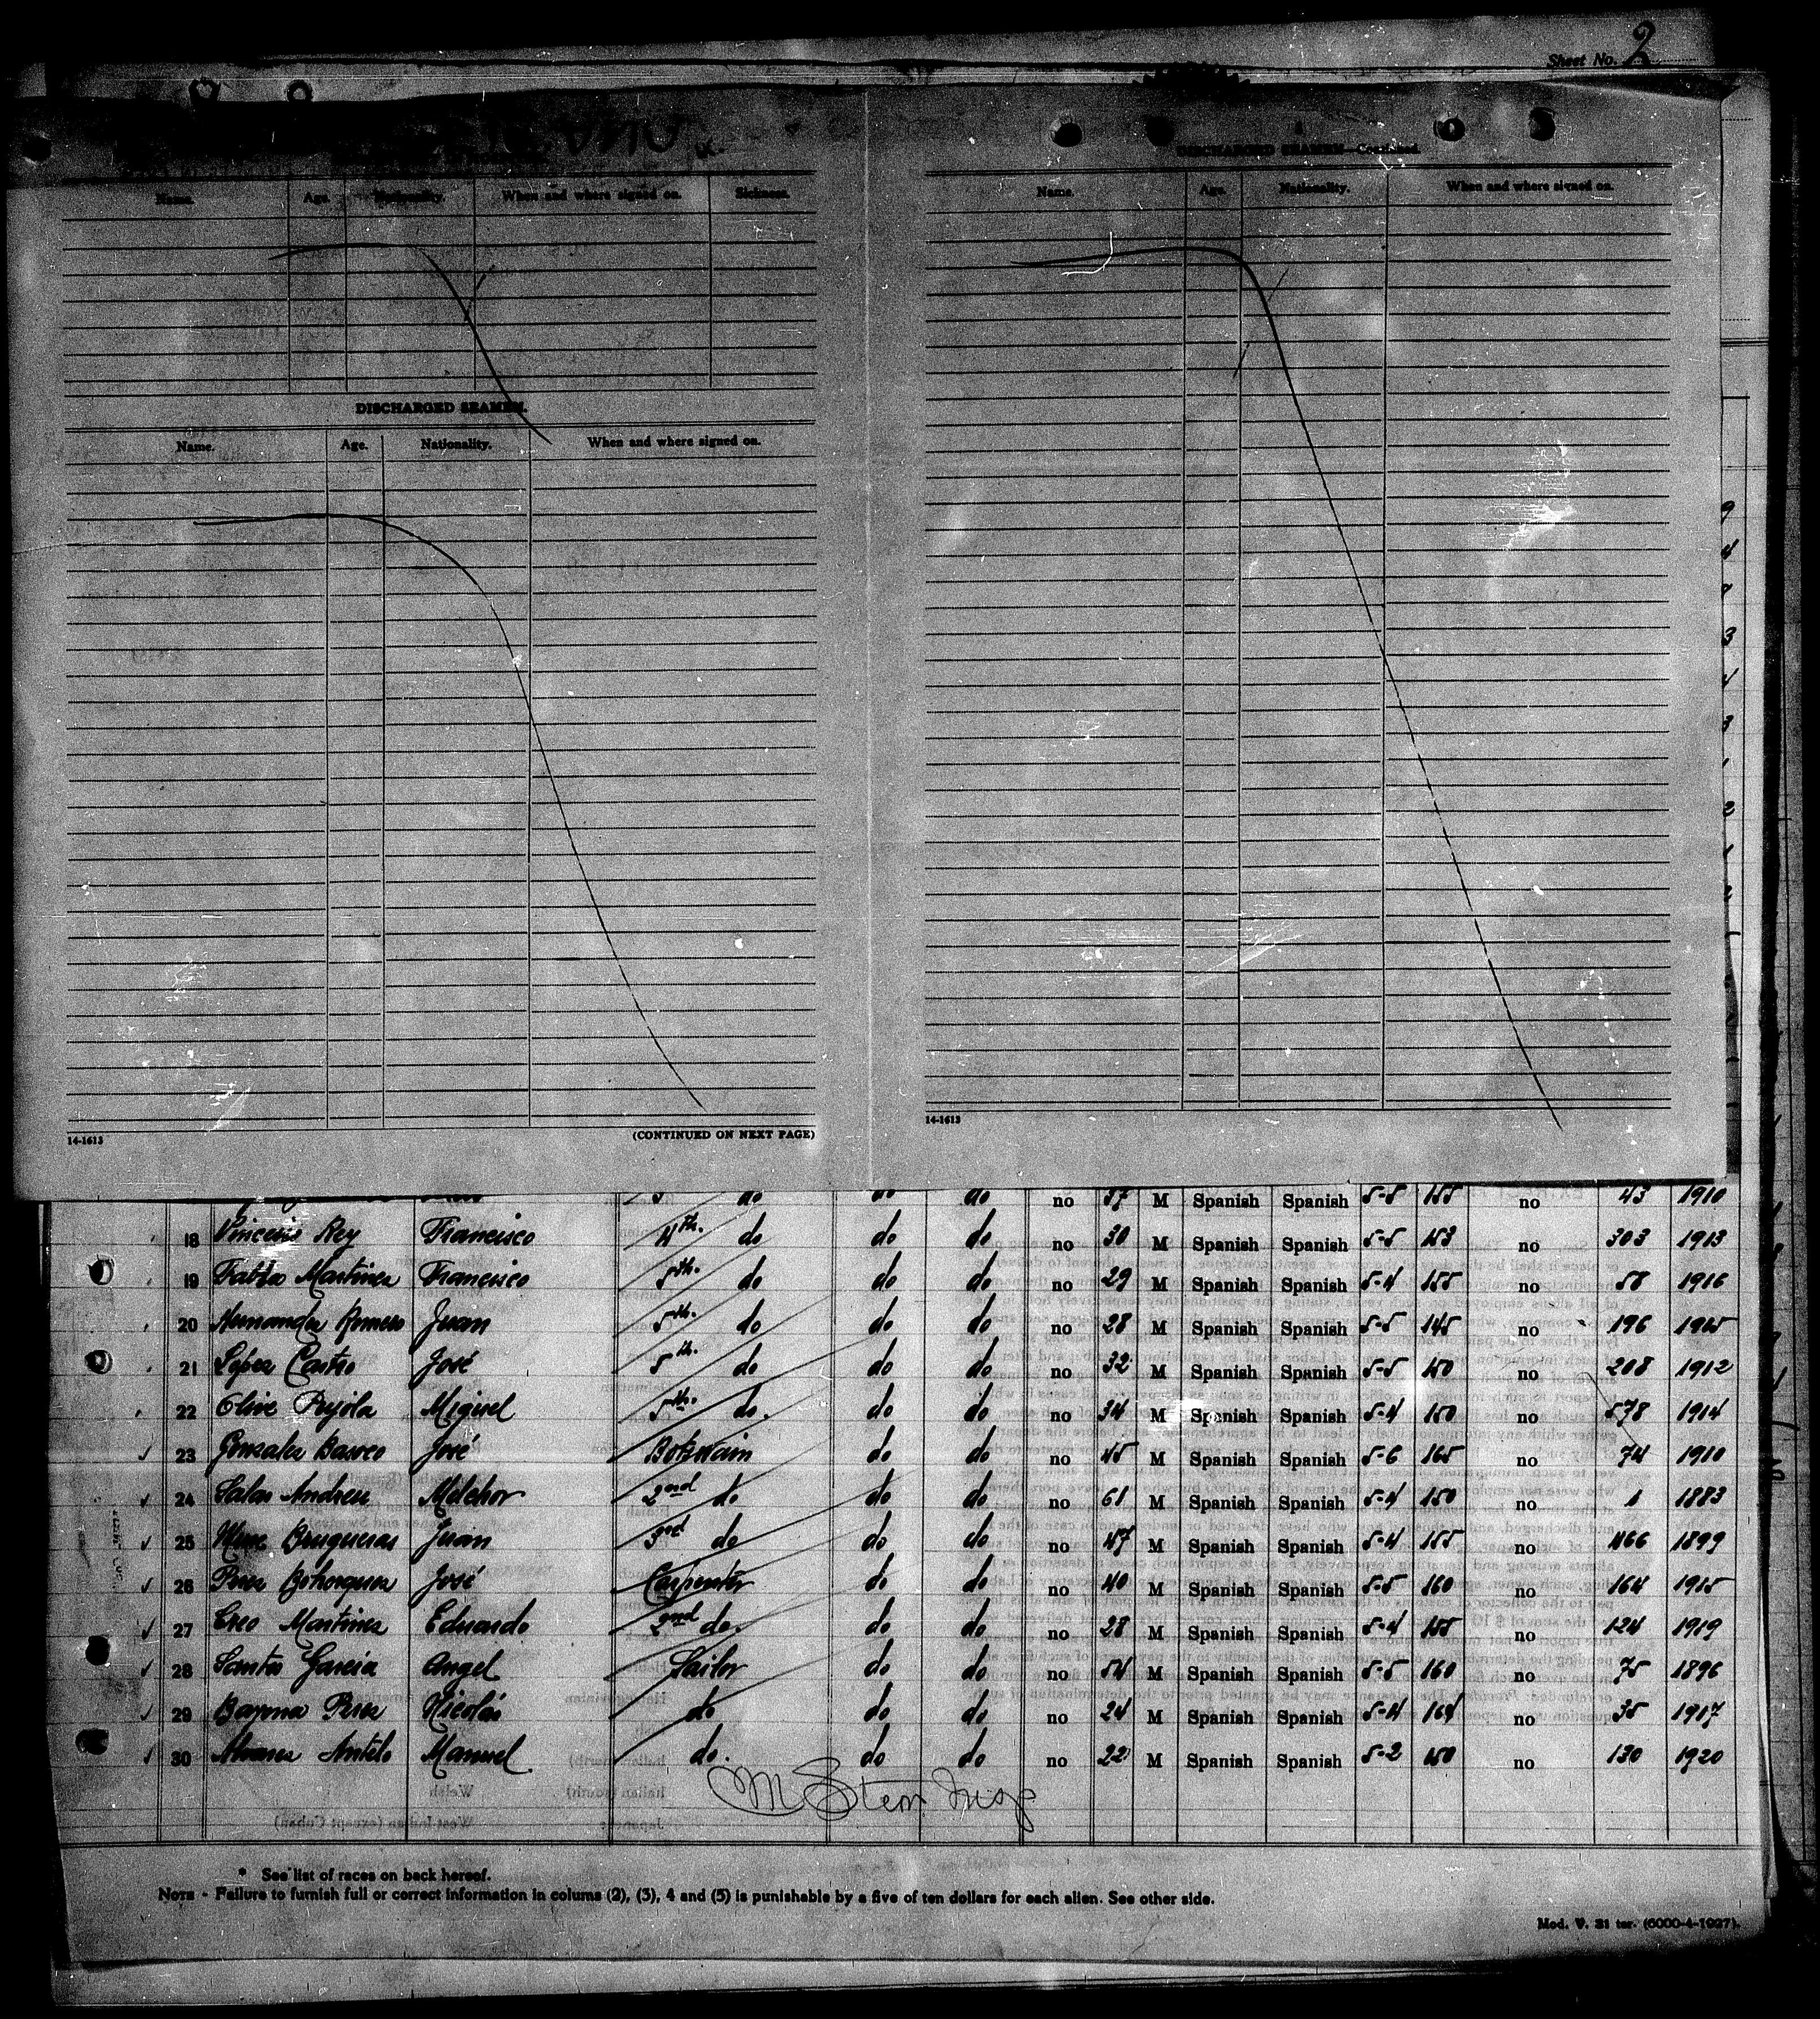 Sheet No. 2
Name. Age. Nationality. When and where signed on. Sickness.
DISCHARGED SEAMEN.
Name. Age. Nationality. When and where signed on.
14-1613 (CONTINUED ON NEXT PAGE)
DISCHARGED SEAMEN—Continued.
Name. Age. Nationality. When and where signed on.
14-1613
do do do no 37 M Spanish Spanish 5-5 155 no 43 1910
18 Rey Francisco 4th. do do do no 30 M Spanish Spanish 5-5 153 no 303 1913
19 Martinez Francisco 5th. do do do no 29 M Spanish Spanish 5-4 155 no 58 1916
20 Hernandez Romero Juan 5th. do do do no 28 M Spanish Spanish 5-5 145 no 196 1915
21 Lopez Castro José 5th. do do do no 32 M Spanish Spanish 5-5 150 no 208 1912
22 Olive Miguel 5th. do. do do no 34 M Spanish Spanish 5-4 150 no 578 1914
23 Gonzalez José Botswain do do no 45 M Spanish Spanish 5-6 165 no 74 1910
24 Salas Andreu Melchor 2nd do do do no 61 M Spanish Spanish 5-4 150 no 1 1883
25 Brugueras Juan 3rd do do do no 47 M Spanish Spanish 5-4 155 no 466 1899
26 Perez Bohorquez José Carpenter do do no 40 M Spanish Spanish 5-5 160 no 164 1915
27 Martinez Eduardo 2nd do. do do no 28 M Spanish Spanish 5-4 155 no 124 1919
28 Santos Garcia Angel Sailor do do no 54 M Spanish Spanish 5-5 160 no 75 1896
29 Bayona Perez Nicolás do do do no 24 M Spanish Spanish 5-4 164 no 35 1917
30 Alvarez Antelo Manuel do. do do no 22 M Spanish Spanish 5-2 150 no 130 1920
M Stern Insp
* See list of races on back hereof.
NOTE - Failure to furnish full or correct information in colums (2), (3), 4 and (5) is punishable by a five of ten dollars for each alien. See other side.
Mod. V. 31 ter. (6000-4-1927).